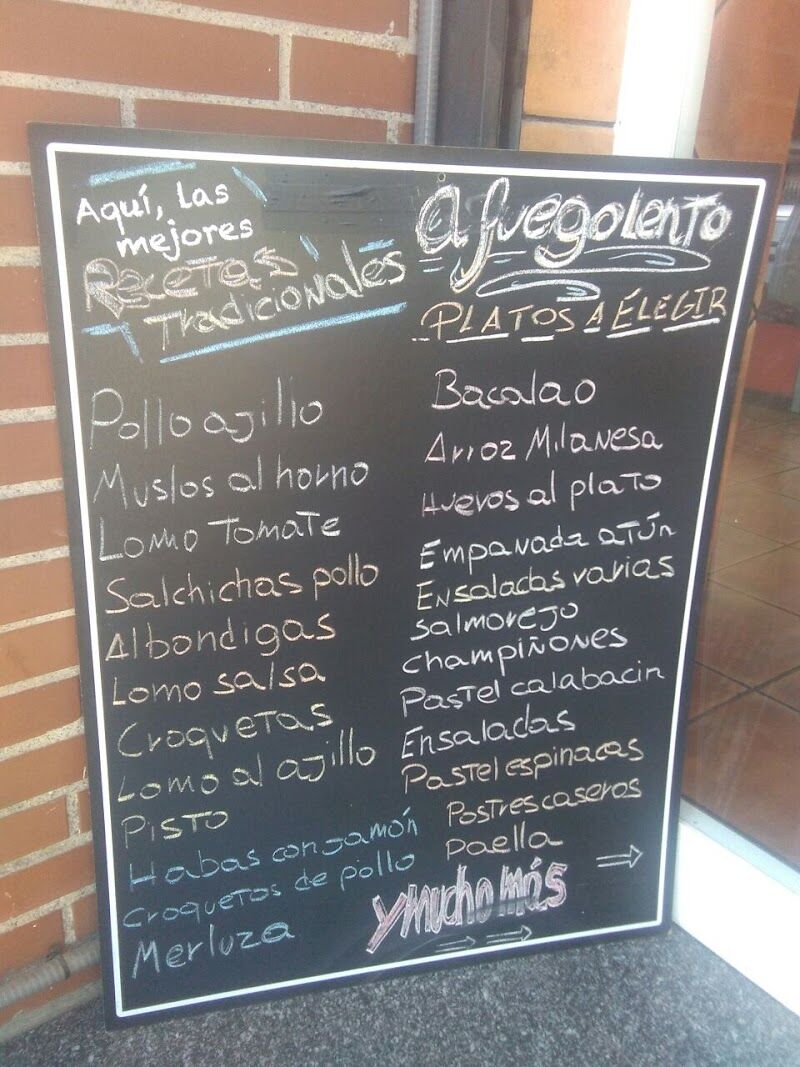 Aquí, las
mejores
Recetas
Tradicionales
Pollo ajillo
Muslos al horno
Lomo Tomate
Salchichas pollo
Albondigas
Lomo salsa
Croquetas
Lomo al ajillo
Pisto
Habas con jamón
Croquetas de pollo
Merluza
A fuego lento
PLATOS A ELEGIR
Bacalao
Arroz Milanesa
Huevos al plato
Empanada atún
Ensaladas varias
Salmorejo
Champiñones
Pastel calabacin
Ensaladas
Pastel espinacas
Postres caseros
Paella
y mucho más